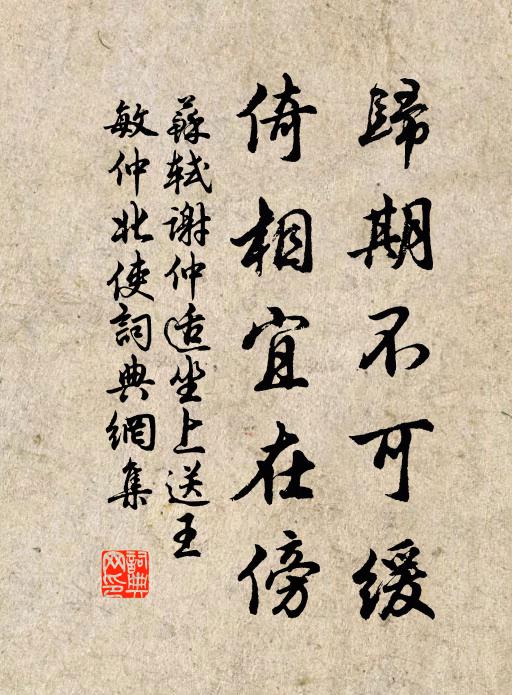 歸期不可緩
倚相宜在傍
蘇軾謝仲适坐上送王
敏仲北使詞典網集
詞典
网印